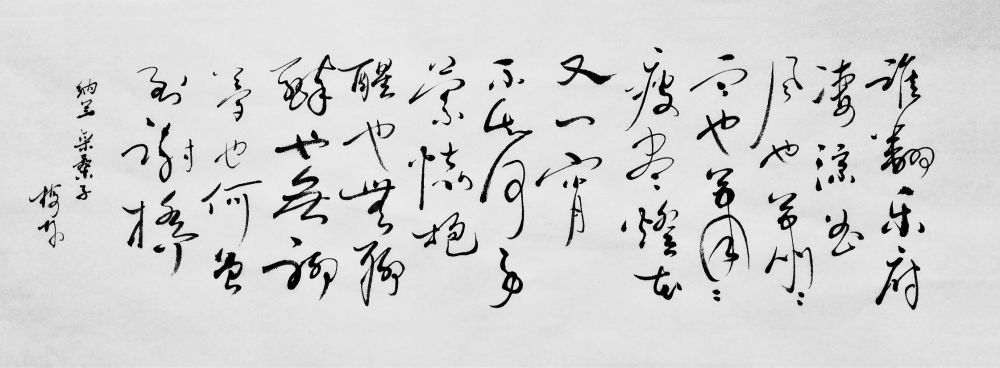 誰翻乐府
凄凉曲
风也萧々
雨也萧々
瘦尽燈花
又一宵
不知何事
萦怀抱
醒也無聊
醉也無聊
梦也何曾
到谢桥
纳兰采桑子